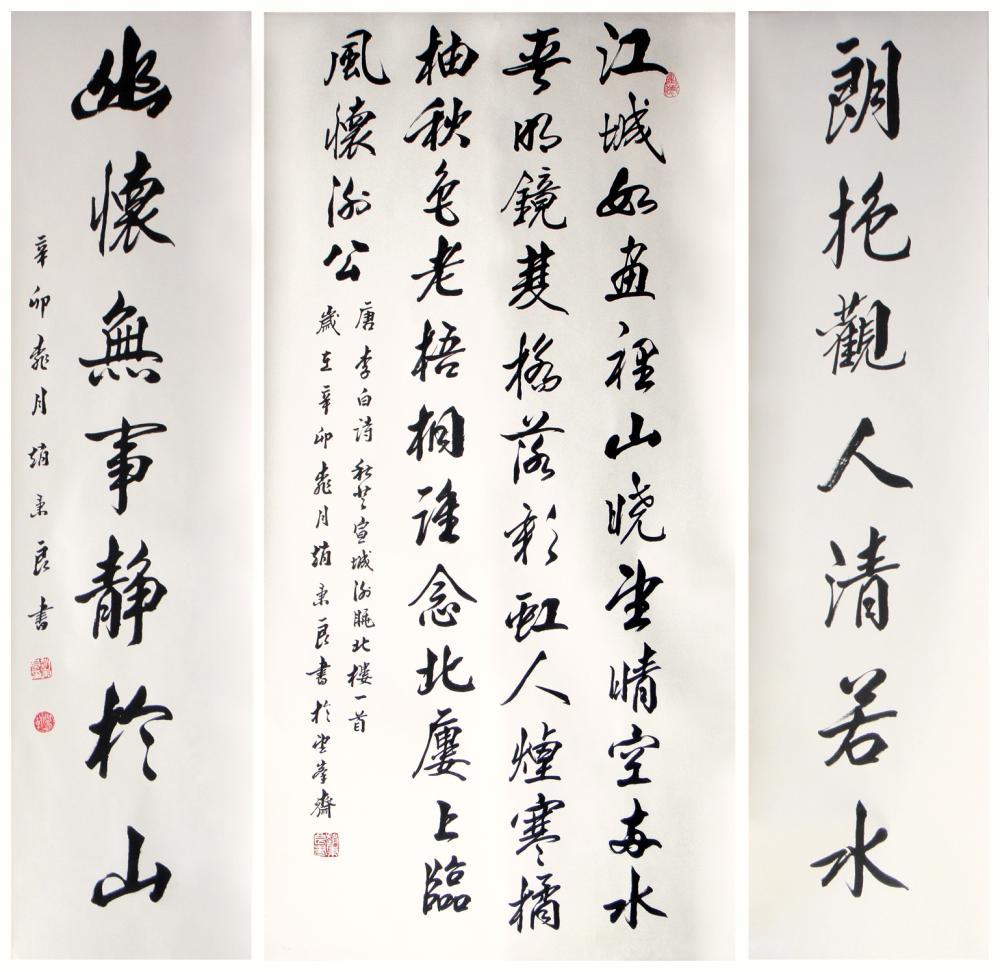 朗抱觀人清若水
江城如畫裡山晓望晴空兩水
夾明鏡雙橋落彩虹人煙寒橘
柚秋色老梧桐誰念北廔上臨
風懷謝公
唐李白詩秋登宣城謝朓北樓一首
歲在辛卯桃月趙良書於望峯齋
幽懷無事静於山
辛卯桃月趙良書